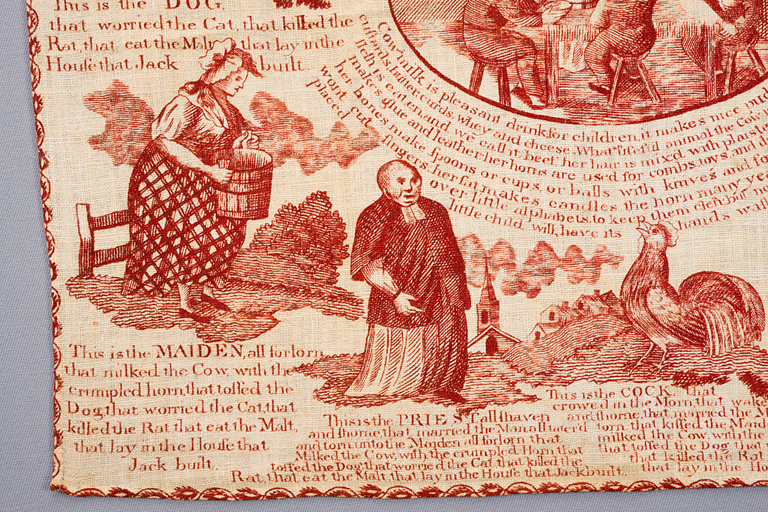 This is the DOG,
that worried the Cat, that killed the
Rat, that eat the Malt, that lay in the
House that Jack built.
Cow milk is pleasant drink for children, it makes nice
custards, butter, curds, whey and cheese. What
flesh is eaten and we call it beef her hair is mix'd with
makes glue and leather her horns are used for combs
her bones make spoons or cups, or balls with knives and
her fat makes candles the horn many
over little alphabets, to keep them
little child will have its hands
This is the MAIDEN, all forlorn
that milked the Cow, with the
crumpled horn, that tossed the
Dog, that worried the Cat, that
killed the Rat that eat the Malt,
that lay in the House that
Jack built.
This is the PRIEST, all shaven
and shorne, that married the Man all
and torn unto the Maiden all forlorn that
Milked the Cow, with the crumpled Horn that
tossed the Dog that worried the Cat that killed the
Rat, that eat the Malt, that lay in the House that Jack built.
This is the COCK, that
crowed in the Morn that
and shorne, that married the
torn, that kissed the
milked the Cow, with the
that tossed the Dog, that
that killed the Rat
that lay in the